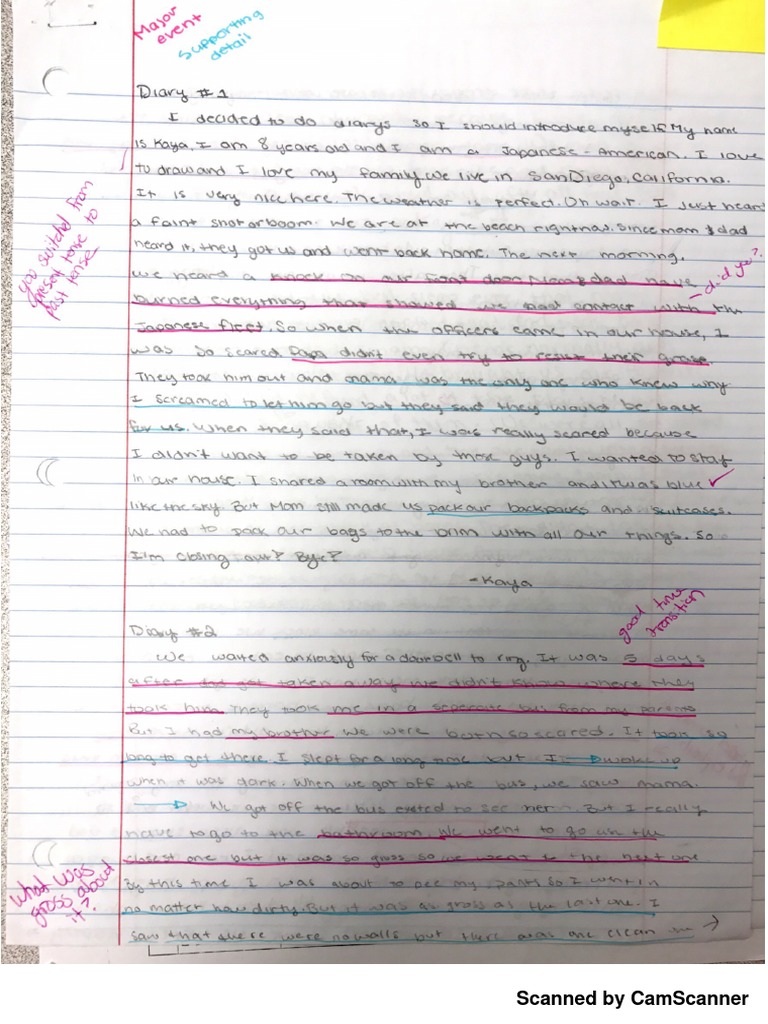 Major
event
supporting
detail
Diary #1
I decided to do diarys so I should introduce myself. My name
is Kaya, I am 8 years old and I am a Japanese-American. I love
to draw and I love my family. we live in San Diego, California.
It is very nice here. The weather is perfect. Oh wait. I Just heard
a faint shot or boom. We are at the beach right now. Since mom & dad
heard it, they got us and went back home. The next morning,
we heard a knock on our front door. Mom & dad have
- did you?
burned everything that showed we had contact with the
Japanese fleet. So when the officers came in our house, I
you switched from
present tense to
past tense
was so scared. Papa didn't even try to their
They took him out and mama was the only one who knew why
I screamed to let him go but they said they would be back
for us. When they said that, I was really scared because
I didn't want to be taken by those guys. I wanted to stay
in our house. I shared a room with my brother and it was blue
like the sky. But Mom still made us pack our backpacks and suitcases.
We had to pack our bags to the brim with all our things. So
I'm closing out? Bye?
- Kaya
good time
transition
Diary #2
We waited anxiously for a doorbell to ring. It was 5 days
after got taken away we didn't know where they
took him. They took me in a seperate bus from my parents
But I had my brother we were both so scared. It took so
long to get there. I slept for a long time but I woke up
when it was dark. When we got off the bus, we saw mama.
We got off the bus to see her. But I really
have to go to the bathroom. We went to go in the
closest one but it was so gross so we went to the next one
What was
gross about
it?
By this time I was about to pee my pants so I went in
no matter how dirty. But it was as gross as the last one. I
saw that there were no walls but there was one clean
Scanned by CamScanner